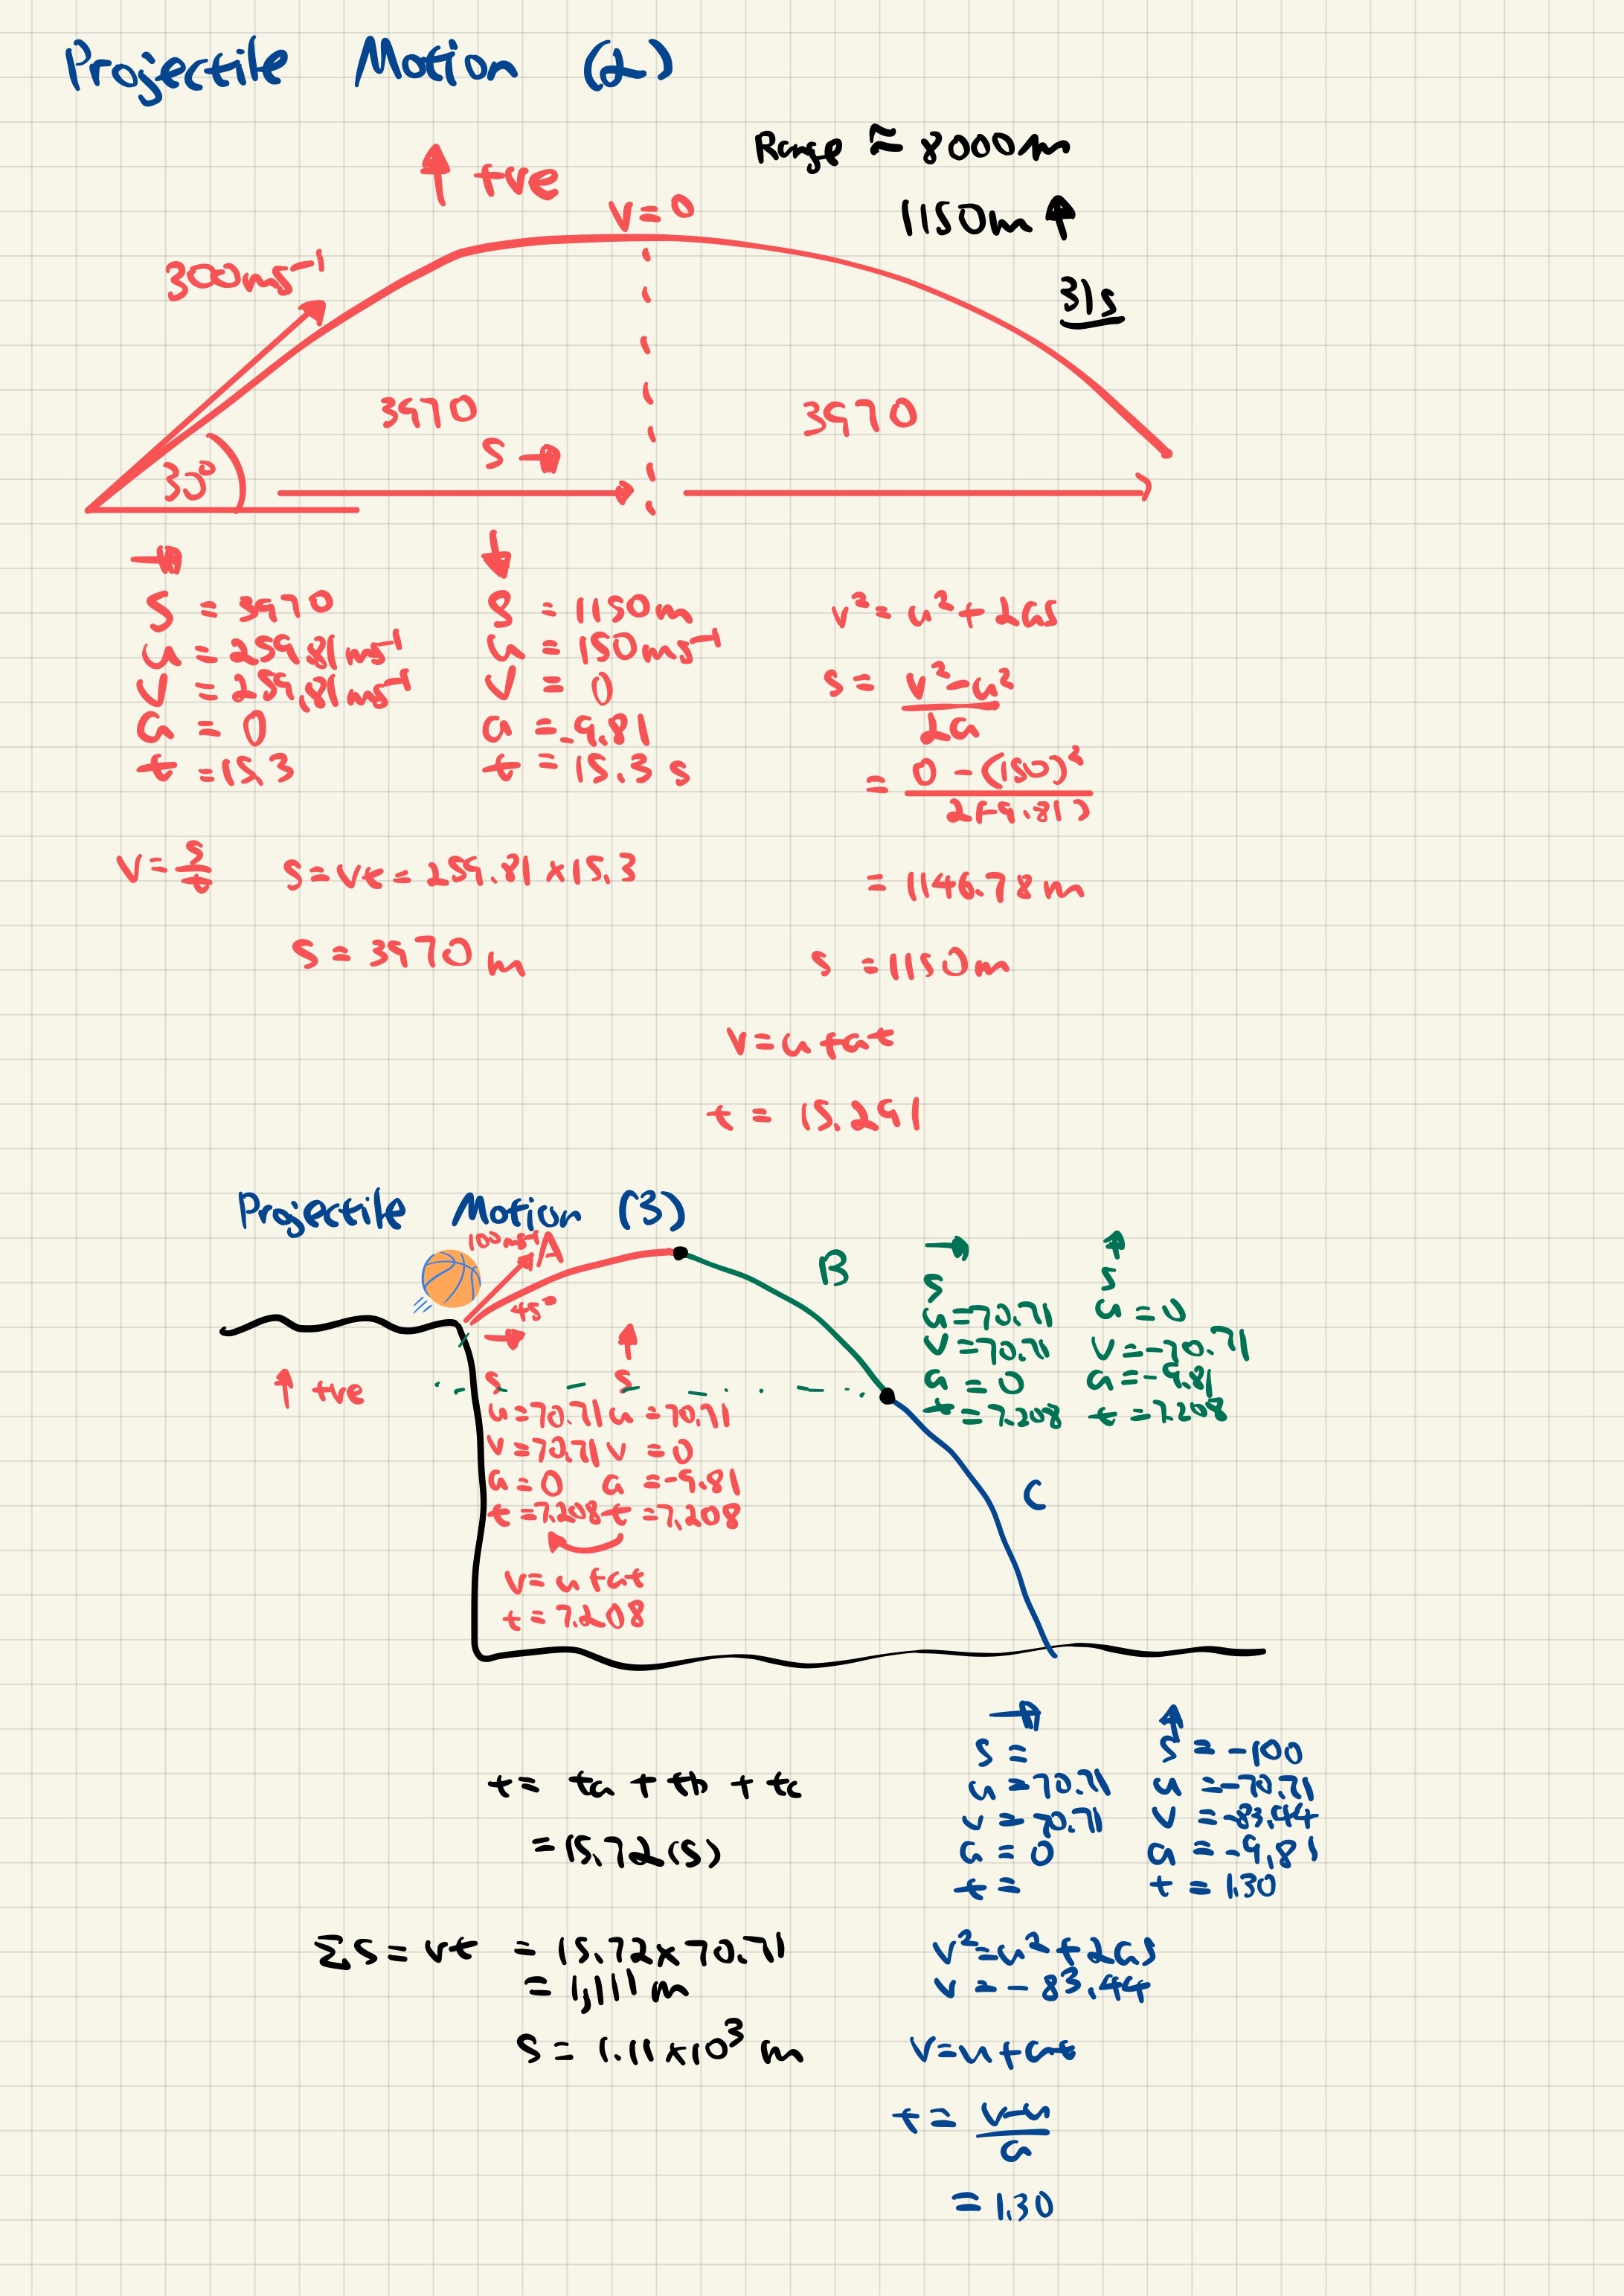 Projectile Motion (2)
Range ≈ 8000m
↑ +ve
v=0
1150m ↑
300ms⁻¹
31s
3970
3970
s →
30°
→
↓
s = 3970
u = 259.81ms⁻¹
v = 259.81ms⁻¹
a = 0
t = 15.3
s = 1150m
u = 150ms⁻¹
v = 0
a = -9.81
t = 15.3 s
v² = u² + 2as
s = (v²-u²)/2a
= (0 - (150)²)/2(-9.81)
= 1146.78 m
s = 1150m
v = s/t
s = vt = 259.81 × 15.3
s = 3970 m
v = u + at
t = 15.291
Projectile Motion (3)
100ms⁻¹
A
45°
B
C
↑ +ve
→
s
u = 70.71
v = 70.71
a = 0
t = 7.208
↑
s
u = 70.71
v = 0
a = -9.81
t = 7.208
v = u + at
t = 7.208
→
s
u = 70.71
v = 70.71
a = 0
t = 7.208
↑
s
u = 0
v = -70.71
a = -9.81
t = 7.208
→
s =
u = 70.71
v = 70.71
a = 0
t =
↑
s = -100
u = -70.71
v = -83.44
a = -9.81
t = 1.30
t = ta + tb + tc
= 15.72(s)
Σs = vt = 15.72 × 70.71
= 1,111 m
s = 1.11×10³ m
v² = u² + 2as
v = - 83.44
v = u + at
t = (v-u)/a
= 1.30